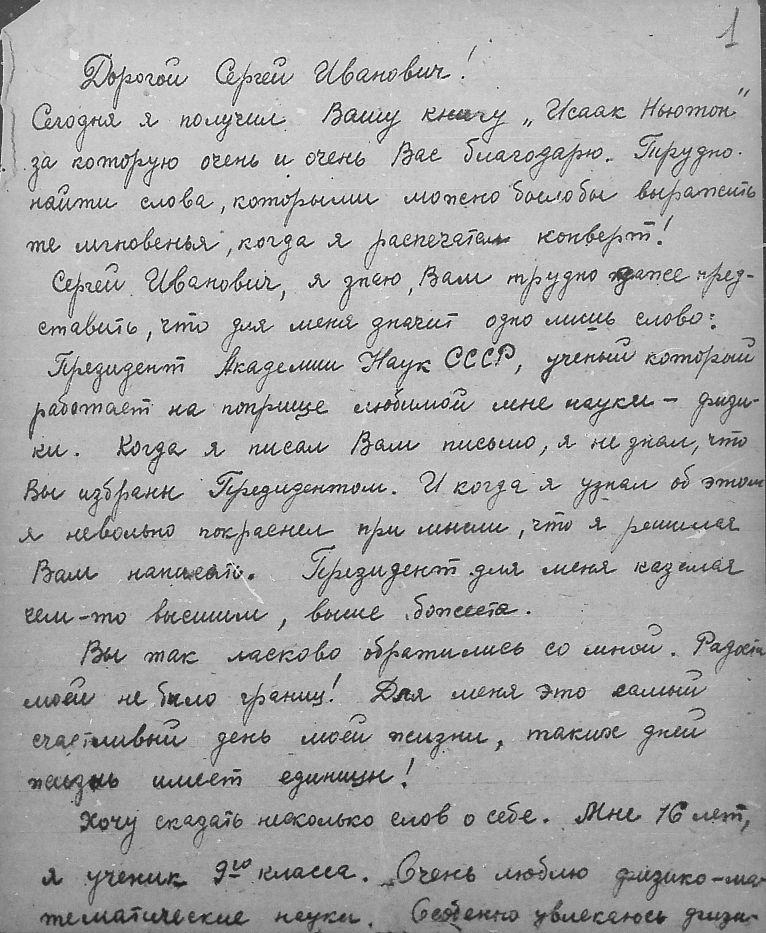 1
Дорогой Сергей Иванович!
Сегодня я получил Вашу книгу „Исаак Ньютон"
за которую очень и очень Вас благодарю. Трудно
найти слова, которыми можно было бы выразить
те мгновенья, когда я распечатал конверт!
Сергей Иванович, я знаю, Вам трудно даже пред-
ставить, что для меня значит одно лишь слово:
Президент Академии Наук СССР, ученый который
работает на поприще любимой мне науки – физи-
ки. Когда я писал Вам письмо, я не знал, что
Вы избраны Президентом. И когда я узнал об этом
я невольно покраснел при мысли, что я решился
Вам написать. Президент для меня казался
чем-то высшим, выше божества.
Вы так ласково обратились со мной. Радости
моей не было границ! Для меня это самый
счастливый день моей жизни, таких дней
жизнь имеет единицы!
Хочу сказать несколько слов о себе. Мне 16 лет,
я ученик 9го класса. Очень люблю физико-ма-
тематические науки. Особенно увлекаюсь физи-